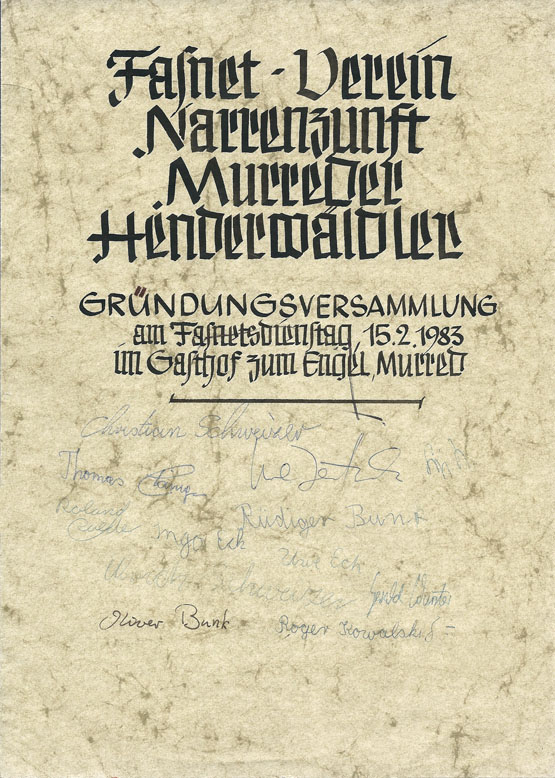 Fasnet-Verein
Narrenzunft
Murreder
Henderwäldler
GRÜNDUNGSVERSAMMLUNG
am Fasnetsdienstag, 15.2.1983
im Gasthof zum Engel, Murred
Christian Schweizer
Thomas
Roland
Rüdiger Bunk
Ingo Eck
Uwe Eck
Oliver Bunk
Roger Kowalski